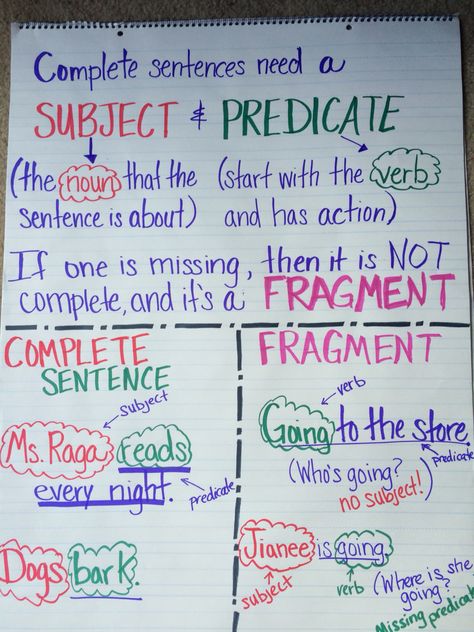 Complete sentences need a
SUBJECT & PREDICATE
(the noun that the
sentence is about)
(start with the verb
and has action)
If one is missing, then it is NOT
complete, and it's a FRAGMENT
COMPLETE
SENTENCE
subject
Ms. Raga reads
every night.
predicate
Dogs bark.
FRAGMENT
verb
Going to the store.
predicate
(Who's going?
no subject!)
Jianee is going.
subject
verb
(Where is she
going?
Missing predicate